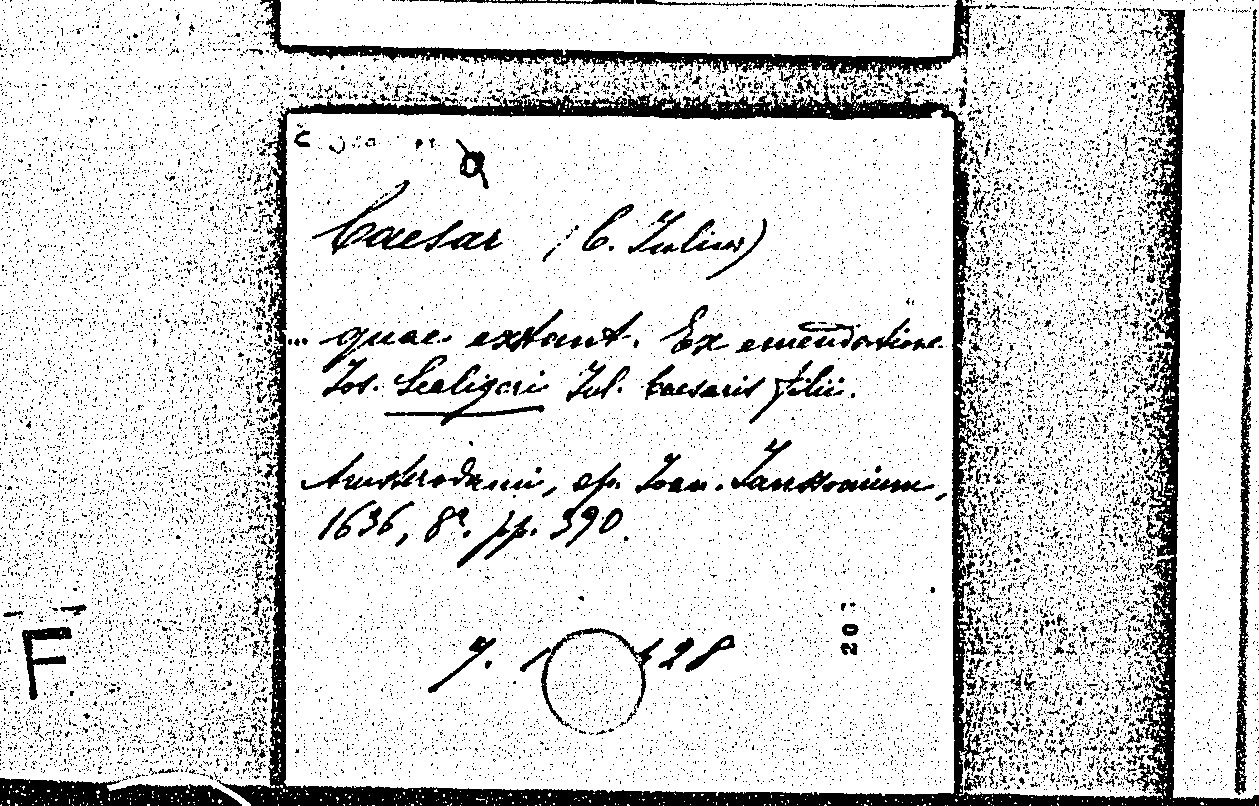 Caesar (C. Iulius)
... quae extant. Ex emendatione
Ios. Scaligeri Iul. Caesaris filii.
Amsterodami, ap. Ioan. Janssonium,
1636, 8º. pp. 390.
7. 428
20
F